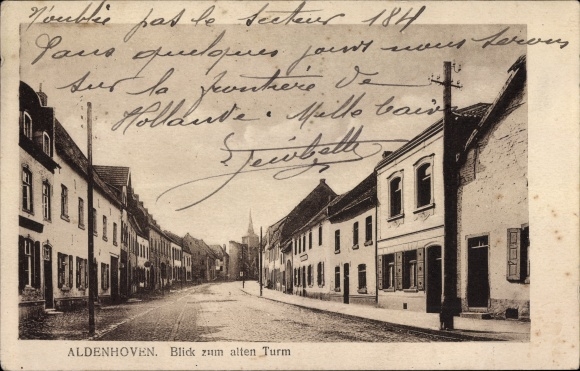 N'oublie pas le secteur 184
Dans quelques jours nous serons
sur la frontière de
Hollande. Mille baisers
ALDENHOVEN. Blick zum alten Turm